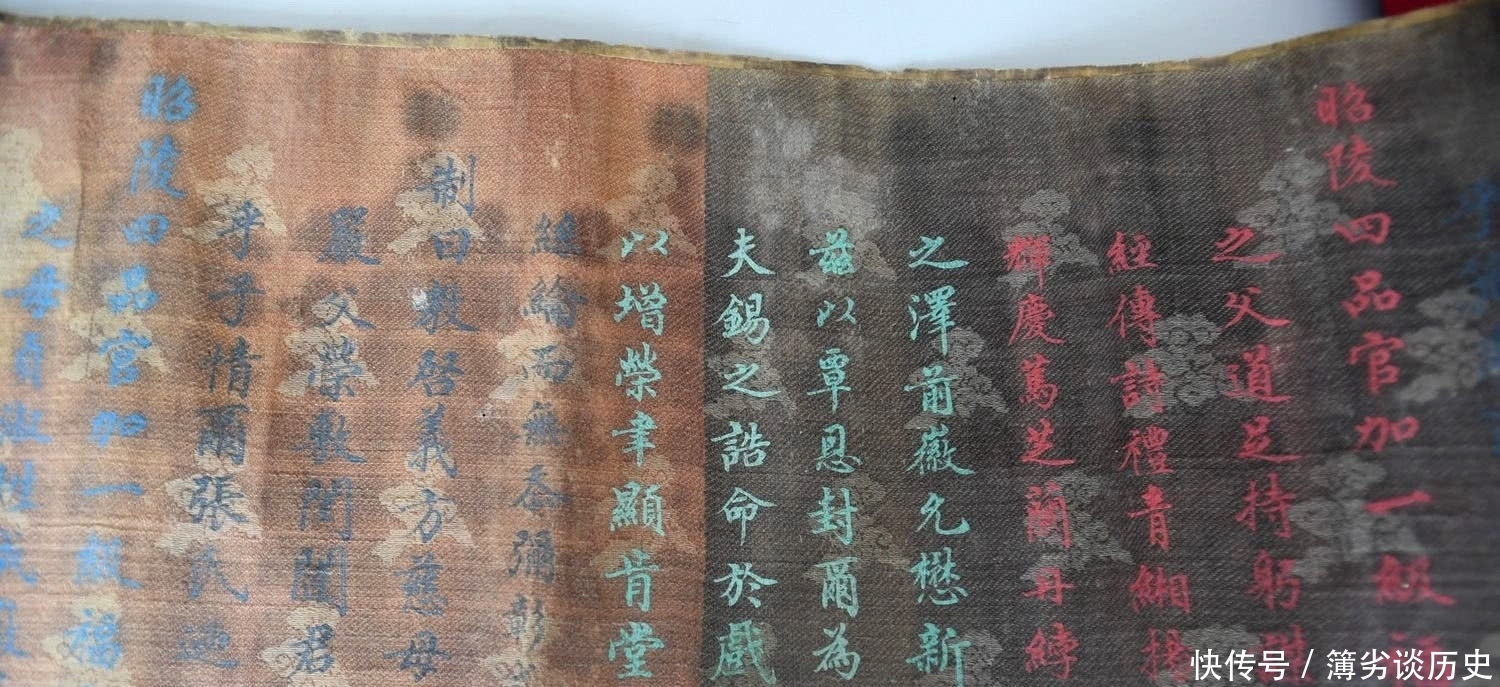 昭陵四品官加一級
之父道足持躬
經傳詩禮青緗
輝慶篤芝蘭丹綍
之澤前徽允懋新
茲以覃恩封爾為
夫錫之誥命於戲
以增榮聿顯肯堂
綸而無忝彌彰
制曰教啓義方慈母
嚴父榮敷閨閫君
乎子情爾張氏迺
昭陵四品官加一級福
之母貞
快传号 / 簿劣谈历史